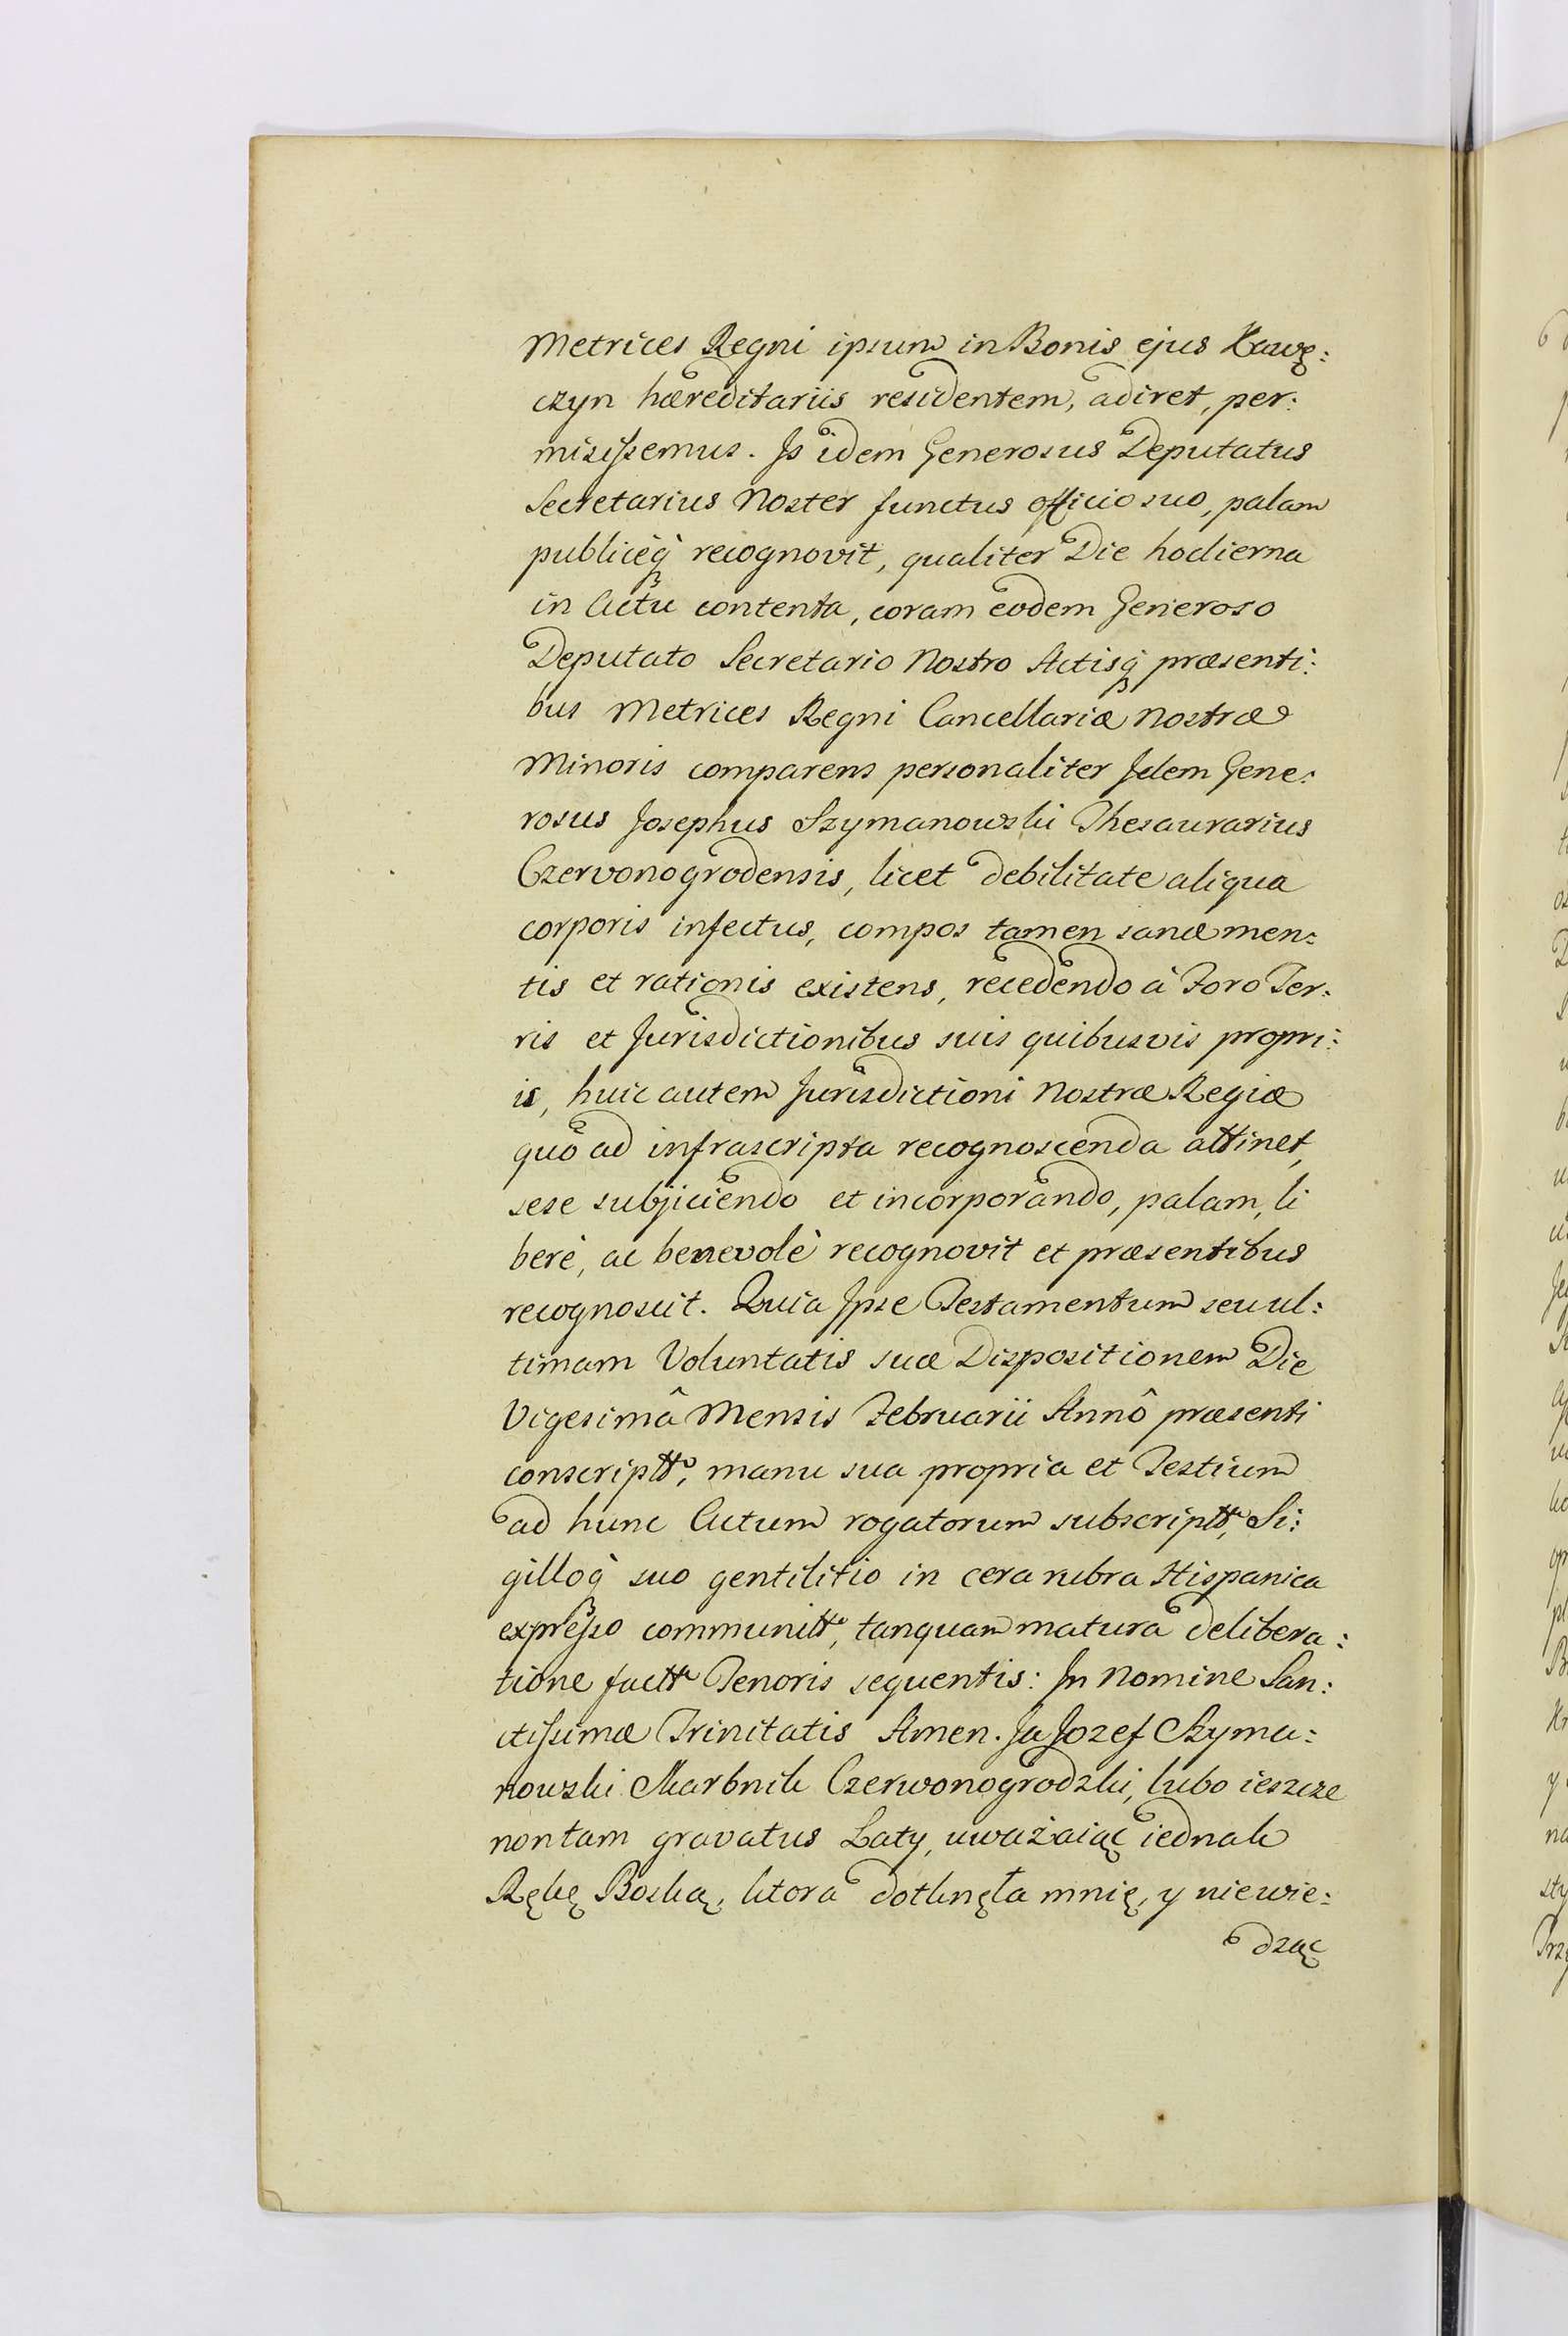 Metrices Regni ipsum in Bonis ejus Kawę:
czyn hæreditariis residentem, adiret, per:
misissemus. Is idem Generosus Deputatus
Secretarius Noster functus officio suo, palam
publicèq́ recognovit, qualiter Die hodierna
in Actu contenta, coram eodem Generoso
Deputato Secretario Nostro Actisq́ præsenti:
bus Metrices Regni Cancellariæ Nostræ
Minoris comparens personaliter Idem Gene:
rosus Josephus Szymanowski Thesaurarius
Czervonogrodensis, licet debilitate aliqua
corporis infectus, compos tamen sanæ men:
tis et rationis existens, recedendo à Foro Ter:
ris et Jurisdictionibus suis quibusvis propri:
is, huic autem Jurisdictioni Nostræ Regiæ
quò ad infrascripta recognoscenda attinet,
sese subjiciendo et incorporando, palam, li
berè, ac benevolè recognovit et præsentibus
recognoscit. Quia Ipse Testamentum seu ul:
timam Voluntatis suæ Dispositionem Die
Vigesimâ Mensis Februarii Annô præsenti
conscriptt, manu sua propria et Testium
ad hunc Actum rogatorum subscriptt, Si:
gilloq́ suo gentilitio in cera rubra Hispanica
expresso communitt, tanquam matura delibera:
tione factt Tenoris sequentis: In Nomine San:
ctissimæ Trinitatis Amen. Ja Jozef Szyma:
nowski Skarbnik Czerwonogrodzki, lubo ieszcze
non tam gravatus Laty, uważaiąc iednak
Rękę Boską, ktora dotknęła mnię, y niewie:
dząc